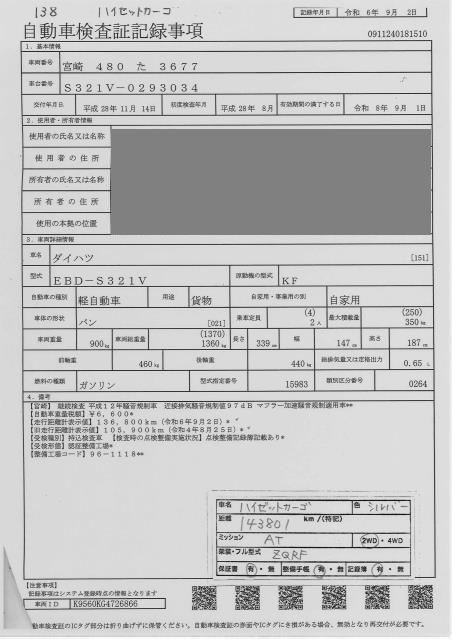 138 ハイゼットカーゴ
記録年月日 令和 6年 9月 2日
自動車検査証記録事項
0911240181510
1．基本情報
車両番号 宮崎 480 た 3677
車台番号 S321V-0293034
交付年月日 平成 28年 11月 14日 初度検査年月 平成 28年 8月 有効期間の満了する日 令和 8年 9月 1日
2．使用者・所有者情報
使用者の氏名又は名称
使用者の住所
所有者の氏名又は名称
所有者の住所
使用の本拠の位置
3．車両詳細情報
車名 ダイハツ [151]
型式 EBD-S321V 原動機の型式 KF
自動車の種別 軽自動車 用途 貨物 自家用・事業用の別 自家用
車体の形状 バン [021] 乗車定員 (4) 2人 最大積載量 (250) 350kg
車両重量 900kg 車両総重量 (1370) 1360kg 長さ 339cm 幅 147cm 高さ 187cm
前軸重 460kg 後軸重 440kg 総排気量又は定格出力 0.65 L
燃料の種類 ガソリン 型式指定番号 15983 類別区分番号 0264
4．備考
【宮崎】 継続検査 平成12年騒音規制車 近接排気騒音規制値97dB マフラー加速騒音規制適用車**
【自動車重量税額】￥6,600*
【走行距離計表示値】136,800km（令和6年9月2日）*
【旧走行距離計表示値】105,900km（令和4年8月25日）*
【受検種別】持込検査車 【検査時の点検整備実施状況】点検整備記録簿記載あり*
【受検形態】認証整備工場*
【整備工場コード】96-1118**
車名 ハイゼットカーゴ 色 シルバー
距離 143801 km／(特記)
ミッション AT 2WD・4WD
架装・フル型式 ZQRF
保証書 有・無 整備手帳 有・無 記録簿 有・無
【注意事項】
記録事項はシステム登録時点の情報となります
車両ID K9560KG4726866
動車検査証のICタグ部分は折り曲げずに保管ください。自動車検査証の券面やICタグにき損がある場合、無効となり再交付が必要です。